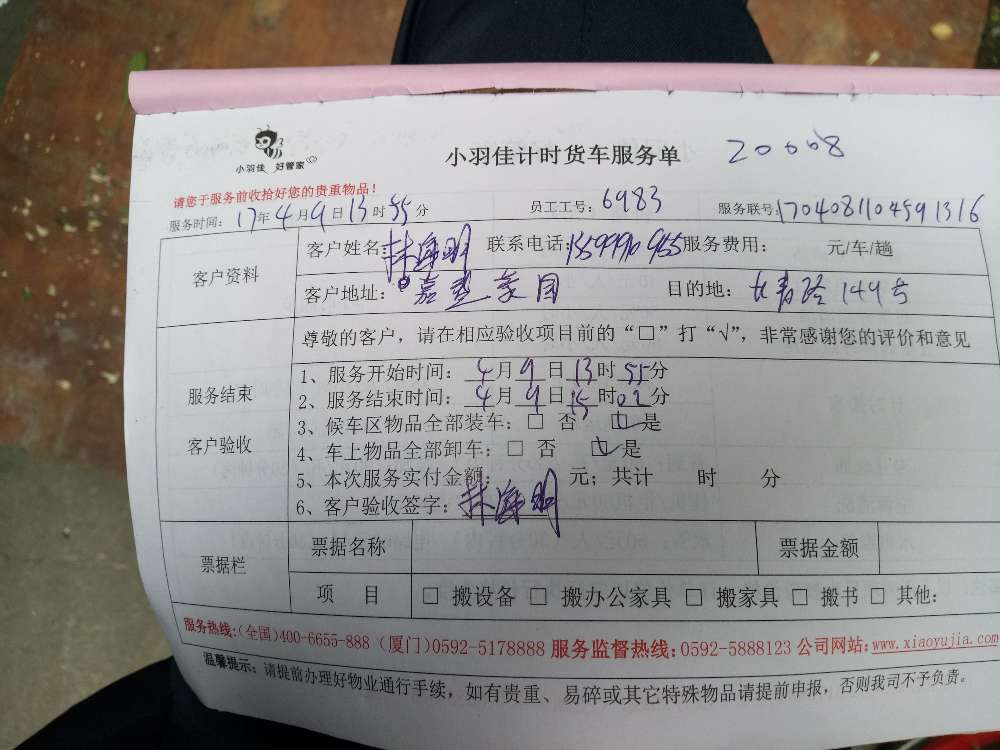 小羽佳 好管家
小羽佳计时货车服务单 20008
请您于服务前收拾好您的贵重物品！
服务时间：17年4月9日13时55分 员工工号：6983 服务联号：1704081104591316
客户资料
客户姓名：林海明 联系电话： 服务费用： 元/车/趟
客户地址： 目的地：
服务结束
客户验收
尊敬的客户，请在相应验收项目前的“□”打“√”，非常感谢您的评价和意见
1、服务开始时间：4月9日13时55分
2、服务结束时间：4月9日15时02分
3、候车区物品全部装车：□ 否 □ 是
4、车上物品全部卸车：□ 否 □ 是
5、本次服务实付金额： 元；共计 时 分
6、客户验收签字：林海明
票据栏
票据名称 票据金额
项 目 □ 搬设备 □ 搬办公家具 □ 搬家具 □ 搬书 □ 其他：
服务热线:(全国)400-6655-888 (厦门)0592-5178888 服务监督热线:0592-5888123 公司网站:www.xiaoyujia.com
温馨提示：请提前办理好物业通行手续，如有贵重、易碎或其它特殊物品请提前申报，否则我司不予负责。